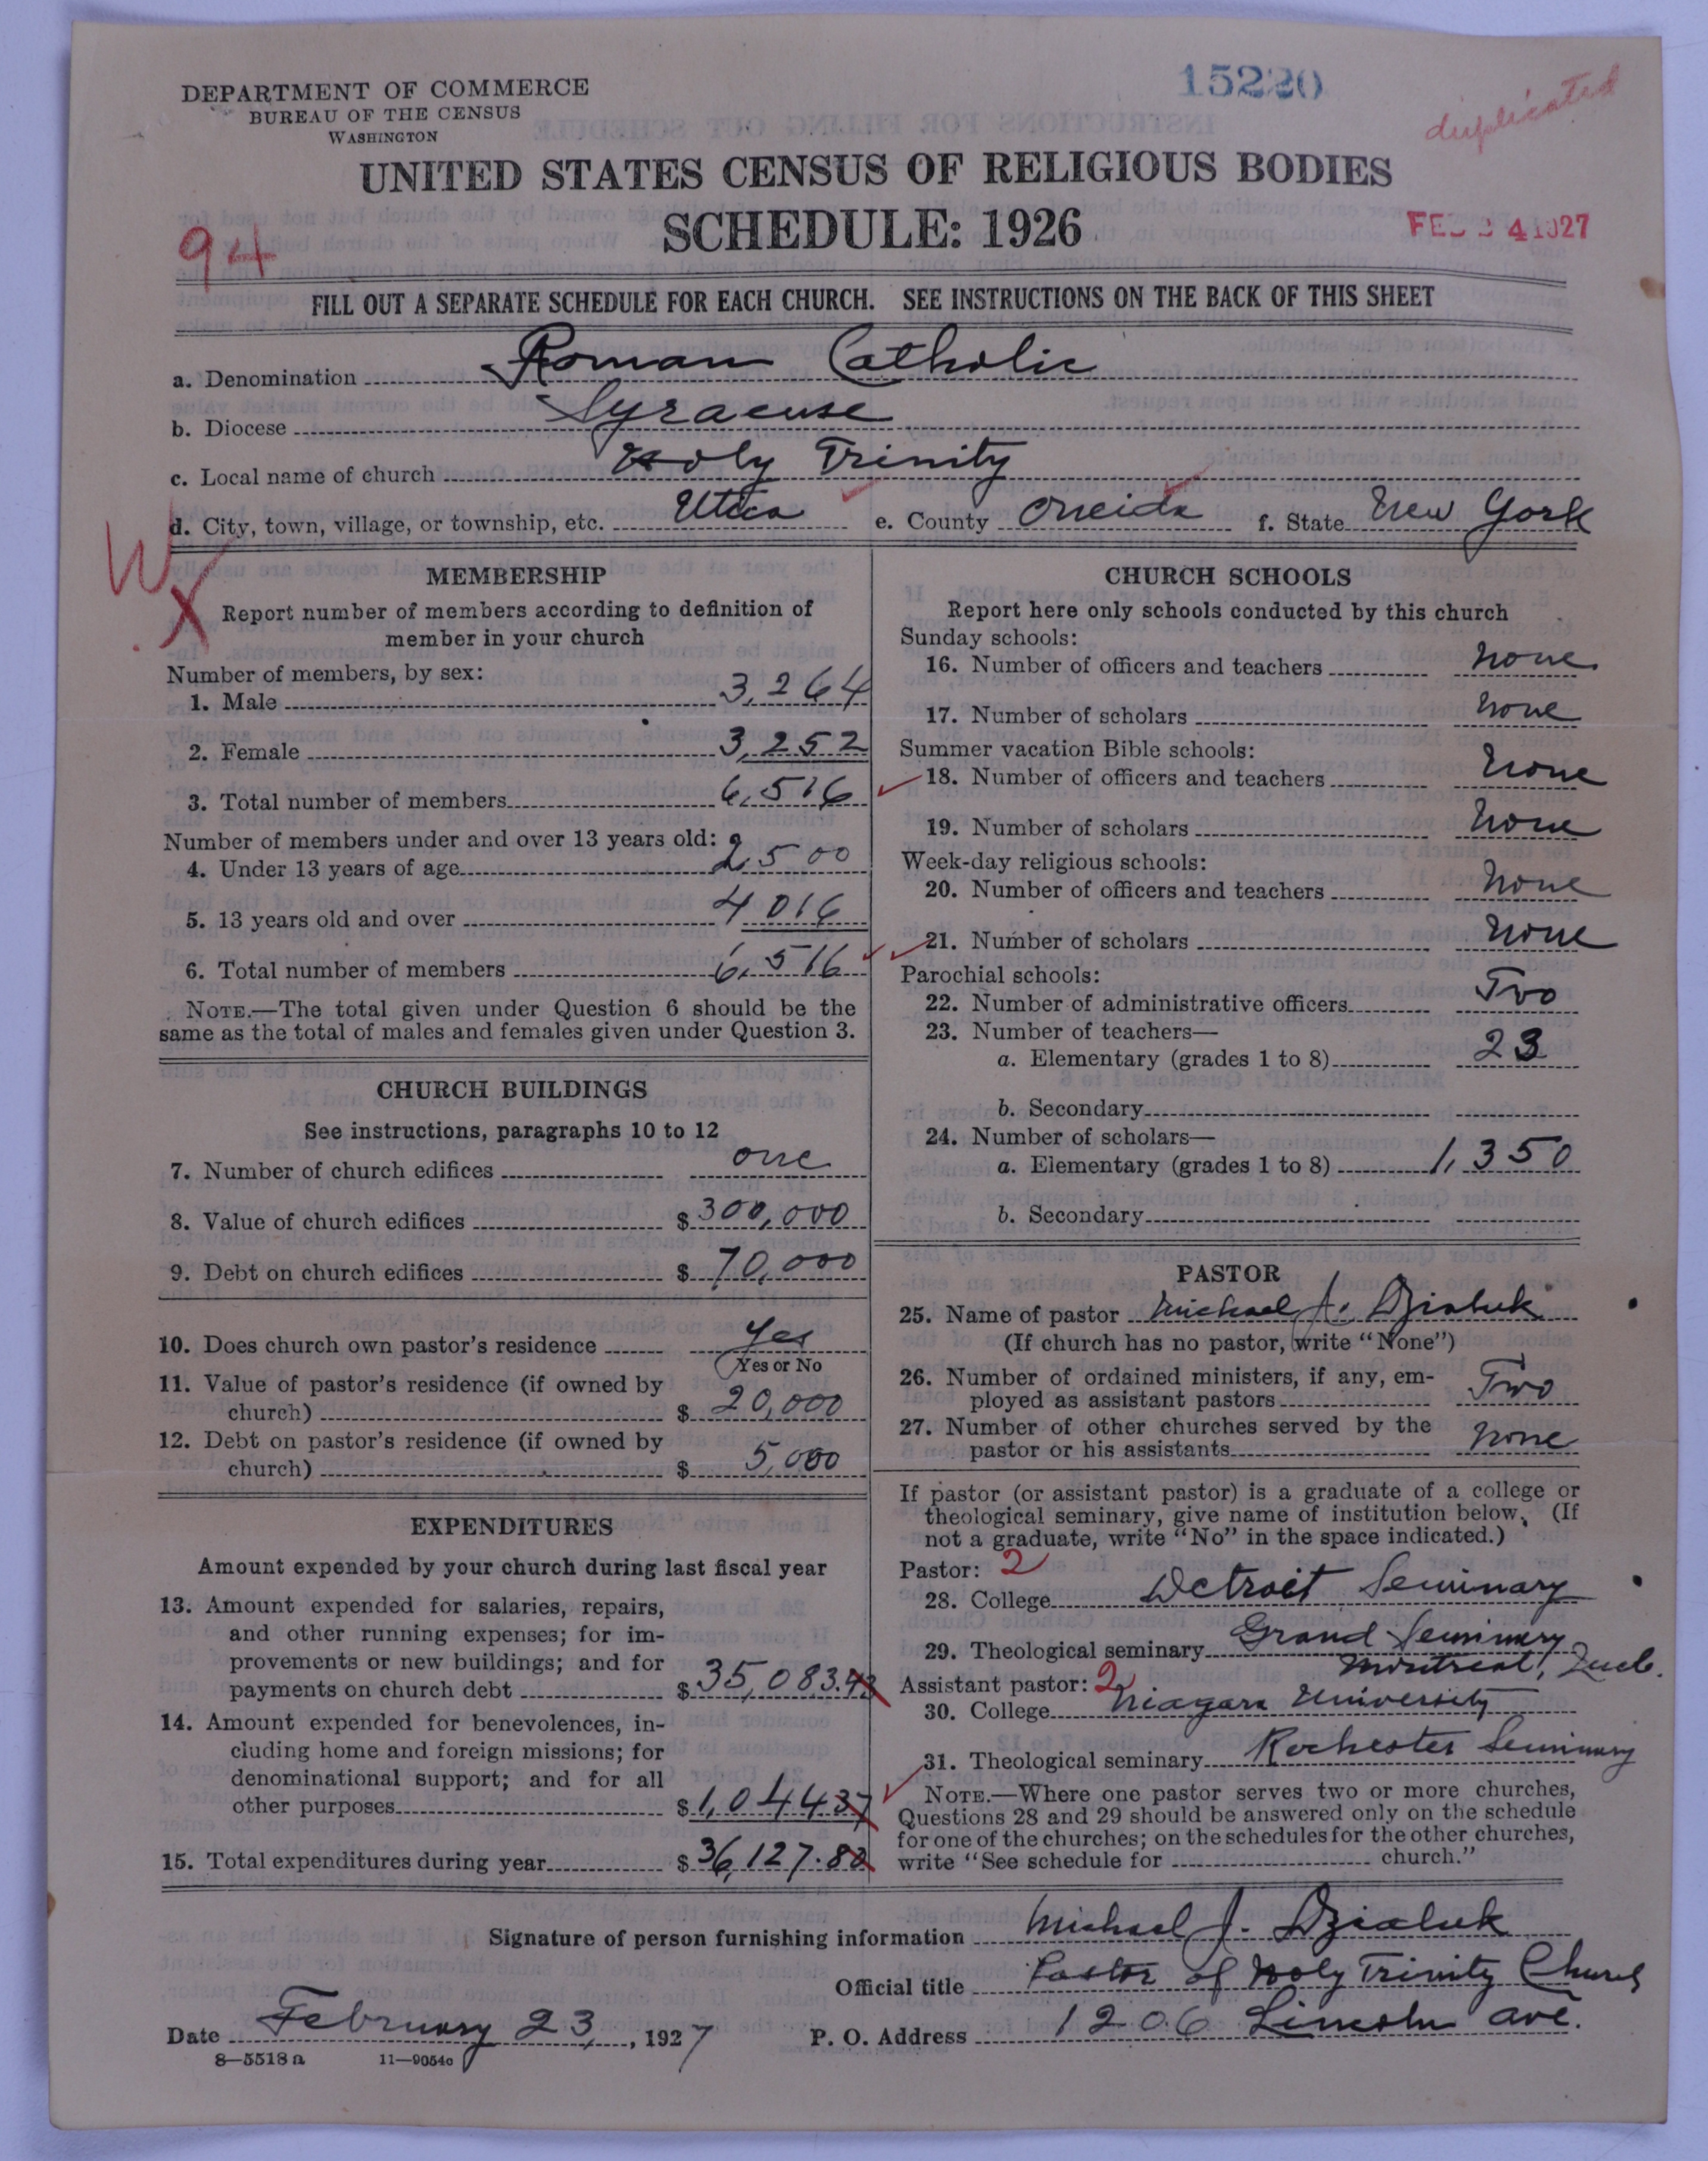 DEPARTMENT OF COMMERCE
BUREAU OF THE CENSUS
WASHINGTON
15220
duplicated
UNITED STATES CENSUS OF RELIGIOUS BODIES
SCHEDULE: 1926
94
FEB 24 1927
FILL OUT A SEPARATE SCHEDULE FOR EACH CHURCH. SEE INSTRUCTIONS ON THE BACK OF THIS SHEET
a. Denomination Roman Catholic
b. Diocese Syracuse
c. Local name of church Holy Trinity
d. City, town, village, or township, etc. Utica e. County Oneida f. State New York
W
X
MEMBERSHIP
Report number of members according to definition of
member in your church
Number of members, by sex:
1. Male 3,264
2. Female 3,252
3. Total number of members 6,516
Number of members under and over 13 years old:
4. Under 13 years of age 2,500
5. 13 years old and over 4016
6. Total number of members 6,516
NOTE.—The total given under Question 6 should be the
same as the total of males and females given under Question 3.
CHURCH BUILDINGS
See instructions, paragraphs 10 to 12
7. Number of church edifices one
8. Value of church edifices $ 300,000
9. Debt on church edifices $ 70,000
10. Does church own pastor's residence Yes
Yes or No
11. Value of pastor's residence (if owned by
church) $ 20,000
12. Debt on pastor's residence (if owned by
church) $ 5,000
EXPENDITURES
Amount expended by your church during last fiscal year
13. Amount expended for salaries, repairs,
and other running expenses; for im-
provements or new buildings; and for
payments on church debt $ 35,083.43
14. Amount expended for benevolences, in-
cluding home and foreign missions; for
denominational support; and for all
other purposes $ 1,044 37
15. Total expenditures during year $ 36,127.80
CHURCH SCHOOLS
Report here only schools conducted by this church
Sunday schools:
16. Number of officers and teachers none
17. Number of scholars none
Summer vacation Bible schools:
18. Number of officers and teachers none
19. Number of scholars none
Week-day religious schools:
20. Number of officers and teachers none
21. Number of scholars none
Parochial schools:
22. Number of administrative officers Two
23. Number of teachers—
a. Elementary (grades 1 to 8) 23
b. Secondary
24. Number of scholars—
a. Elementary (grades 1 to 8) 1,350
b. Secondary
PASTOR
25. Name of pastor Michael J. Dzialuk
(If church has no pastor, write "None")
26. Number of ordained ministers, if any, em-
ployed as assistant pastors Two
27. Number of other churches served by the
pastor or his assistants none
If pastor (or assistant pastor) is a graduate of a college or
theological seminary, give name of institution below. (If
not a graduate, write "No" in the space indicated.)
Pastor: 2
28. College Detroit Seminary
29. Theological seminary Grand Seminary
Montreal, Queb.
Assistant pastor: 2
30. College Niagara University
31. Theological seminary Rochester Seminary
NOTE.—Where one pastor serves two or more churches,
Questions 28 and 29 should be answered only on the schedule
for one of the churches; on the schedules for the other churches,
write "See schedule for church."
Signature of person furnishing information Michael J. Dzialuk
Official title Pastor of Holy Trinity Church
Date February 23, 1927 P. O. Address 1206 Lincoln ave.
8—5518 a 11—9054c